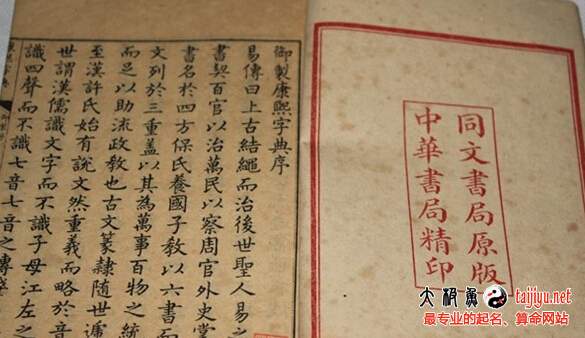 同文書局原版
中華書局精印
御製康熙字典序
易傳曰上古結繩而治後世聖人易之
書契百官以治萬民以察周官外史掌
書名於四方保氏養國子教以六書而
文列於三重蓋以其為萬事百物之統
而足以助流政教也古文篆隸隨世遞
至漢許氏始有說文然重義而略於音
世謂漢儒識文字而不識子母江左之
識四聲而不識七音七音之傳
大极鱼 taijiyu.net
最专业的起名、算命网站